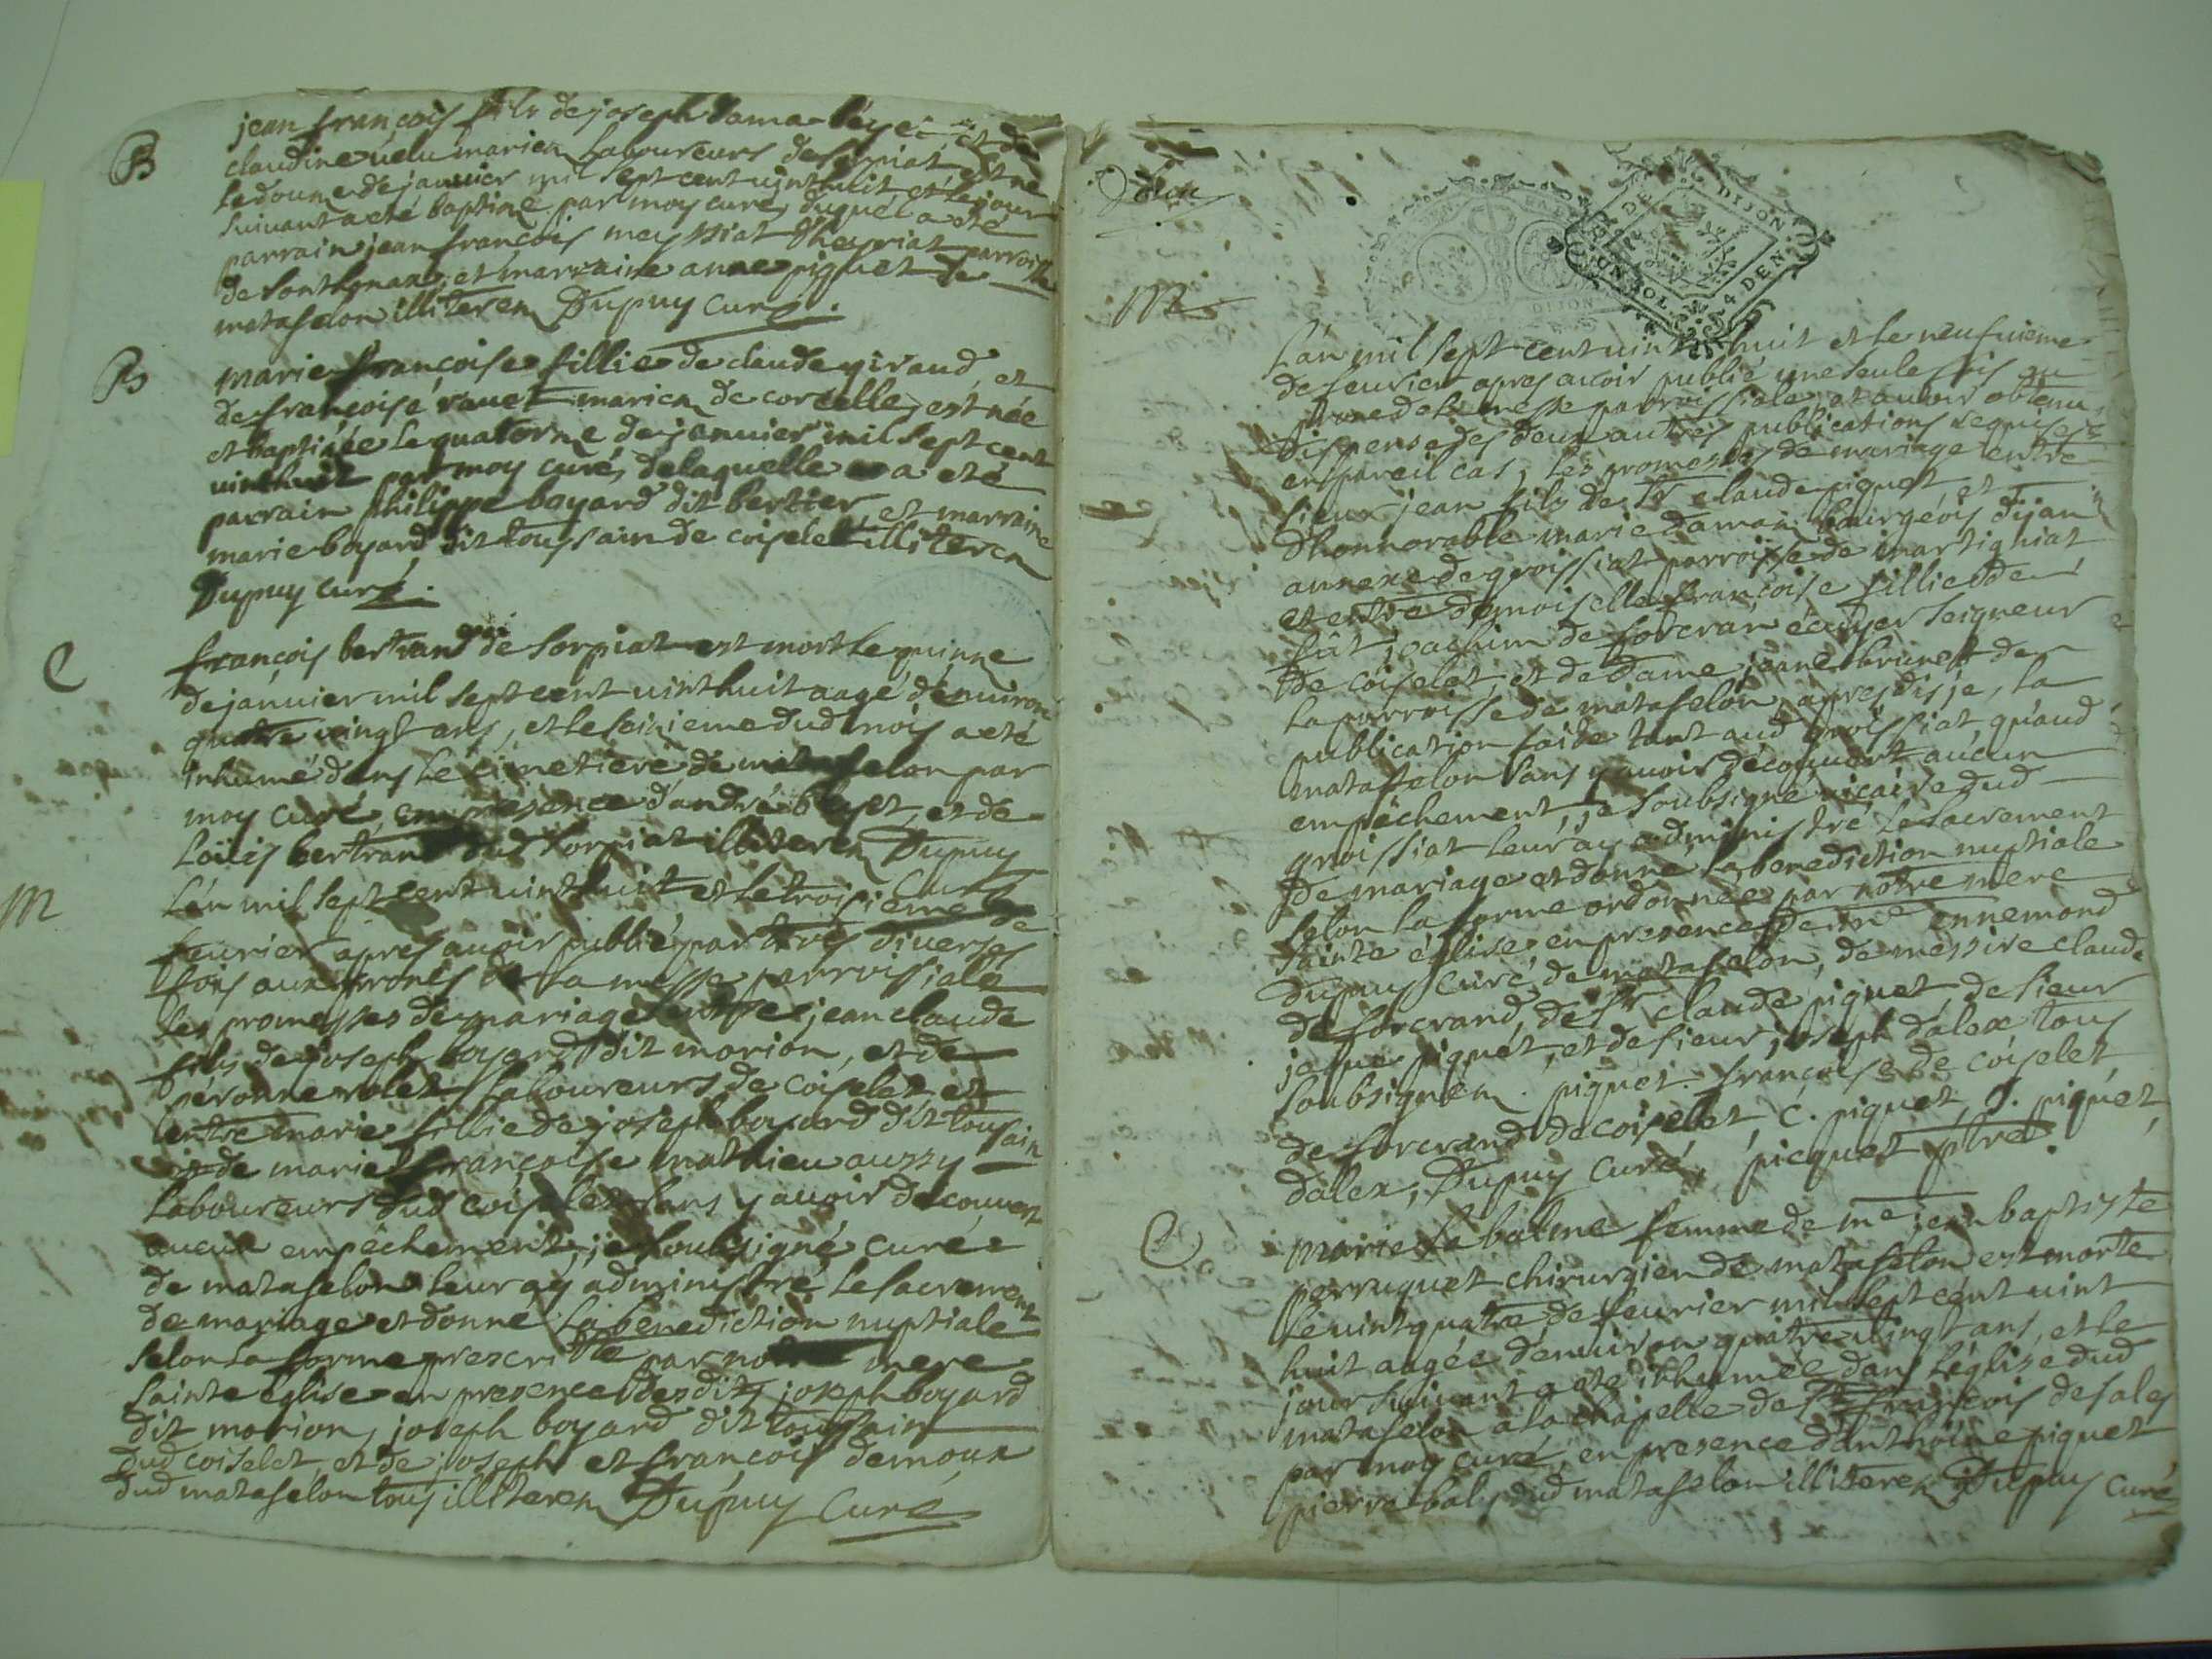 B
jean françois fils de joseph et de
claudine uelu mariez laboureurs de sorpiat, est né
le douze de januier mil sept cent uint huit et le jour
suiuant a eté baptizé par moy curé, duquel a eté
parrain jean françois meyssiat d'heyriat parroisse
de sonthonax, et marraine anne piquet de
matafelon illiterez Dupuy Curé.
B
marie françoise fillie de claude giraud et
de françoise vauet mariez de corcelle, est née
et baptizée le quatorze de januier mil sept cent
uint huit par moy curé, de laquelle a eté
parrain philippe boyard dit bertier et marraine
marie boyard dit toussain de coiselet illiterez
Dupuy curé.
C
françois bertrand de sorpiat est mort le quinze
de januier mil sept cent uint huit aagé d'enuiron
quatre vingt ans, et le seizieme dud mois a eté
inhumé dans le cimetiere de matafelon par
moy curé, en presence d'andré blayet, et de
Loüis bertrand dud sorpiat illiterez Dupuy
Curé
M
L'an mil sept cent uint huit et le troisieme de
feurier apres auoir publié par trois diuerses
fois aux prones de la messe parroissiale
les promesses de mariage entre jean claude
fils de joseph boyard dit morion, et de
péronne rolet laboureurs de coiselet et
entre marie fillie de joseph boyard dit tousain
et de marie françoise mathieu aussy
laboureurs dud coiselet sans y auoir découuert
aucun empêchement, je soubsigné curé
de matafelon leur ay administré le sacrement
de mariage et donné la benediction nuptiale
selon la forme prescritte par notre mere
sainte église en presence desdits joseph boyard
dit morion, joseph boyard dit toussain
dud coiselet, et de joseph et françois demoux
dud matafelon tous illiterez Dupuy Curé
DIJON
UN SOL 4 DEN.
DIJON
M
L'an mil sept cent uint huit et le neufuieme
de feurier apres auoir publié une seule fois au
prone de la messe parroissiale, et auoir obtenu
dispense des deux autres publications requises
en pareil cas, les promesses de mariage entre
sieur jean fils de Sr claude piquet, et
d'honnorable marie daman bourgeois dijan
annexe de groissiat parroisse de martigniat
et entre demoiselle françoise fillie de
fût joachim de forcran écuyer seigneur
de coiselet, et de dame jeane brunet de
la parroisse de matafelon, apres disje, la
publication faite tant aud groissiat, qu'aud
matafelon sans y auoir découuert aucun
empêchement, je soubsigné uicaire dud
groissiat leur ay administré le sacrement
de mariage et donné la benediction nuptiale
selon la forme ordonnée par notre mere
sainte église, en presence de mre ennemond
Dupuy Curé de matafelon, de messire claude
de forcrand, de Sr claude piquet, de sieur
jaque piquet, et de sieur joseph dalex tous
soubsignéz. piquet. françoise de coiselet,
de forcrand de coiselet, C. piquet, J. piquet,
dalex, Dupuy Curé, picquet ptre.
C
marie la balme femme de me jean baptiste
perruquet chirurgien de matafelon est morte
le uint quatre de feurier mil sept cent uint
huit aagée d'enuiron quatre uingt ans, et le
jour suiuant a eté inhumée dans l'église dud
matafelon a la chapelle de St françois de sales
par moy curé, en presence d'anthoine piquet
pierre bal, dud matafelon illiterez Dupuy Curé